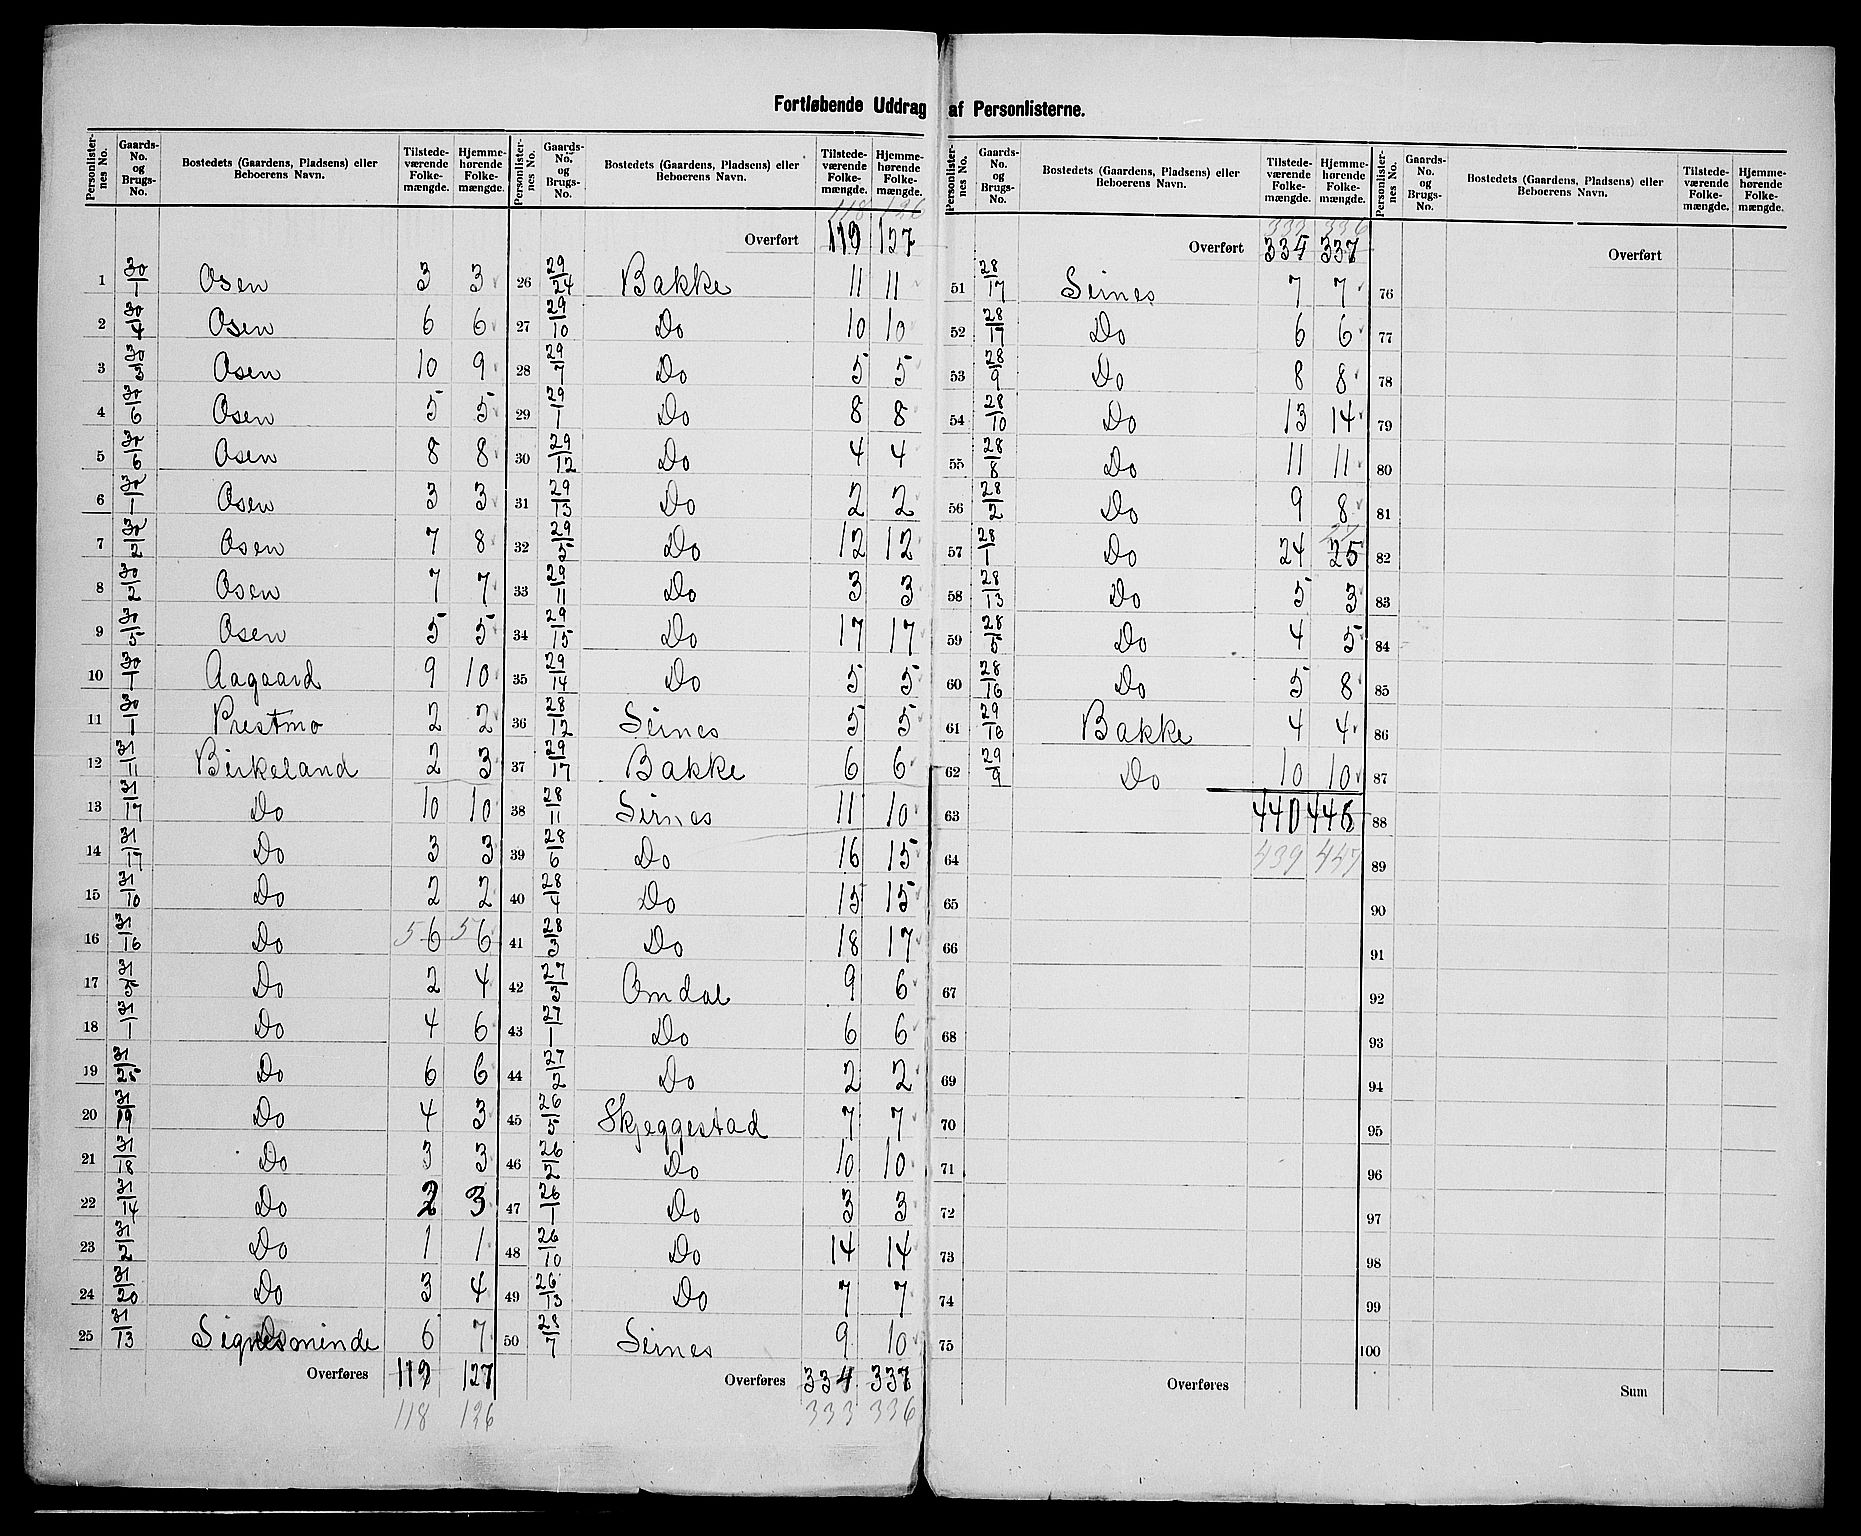 Fortløbende Uddrag af Personlisterne.
Personlisternes No. | Gaards-No. og Brugs-No. | Bostedets (Gaardens, Pladsens) eller Beboerens Navn. | Tilstedeværende Folkemængde. | Hjemmehørende Folkemængde.
1 30/1 Osen 3 3
2 30/4 Osen 6 6
3 30/3 Osen 10 9
4 30/6 Osen 5 5
5 30/6 Osen 8 8
6 30/1 Osen 3 3
7 30/2 Osen 7 8
8 30/2 Osen 7 7
9 30/5 Osen 5 5
10 30/1 Aagaard 9 10
11 30/1 Prestmo 2 2
12 31/11 Birkeland 2 3
13 31/17 Do 10 10
14 31/17 Do 3 3
15 31/10 Do 2 2
16 31/16 Do 5 6 5 6
17 31/5 Do 2 4
18 31/1 Do 4 6
19 31/25 Do 6 6
20 31/19 Do 4 3
21 31/18 Do 3 3
22 31/14 Do 2 3
23 31/2 Do 1 1
24 31/20 Do 3 4
25 31/13 Signesminde 6 7
Overføres 119 127
118 126
Personlisternes No. | Gaards-No. og Brugs-No. | Bostedets (Gaardens, Pladsens) eller Beboerens Navn. | Tilstedeværende Folkemængde. | Hjemmehørende Folkemængde.
118 126
Overført 119 127
26 29/24 Bakke 11 11
27 29/10 Do 10 10
28 29/7 Do 5 5
29 29/1 Do 8 8
30 29/12 Do 4 4
31 29/13 Do 2 2
32 29/5 Do 12 12
33 29/11 Do 3 3
34 29/15 Do 17 17
35 29/14 Do 5 5
36 28/12 Seines 5 5
37 29/17 Bakke 6 6
38 28/11 Sirnes 11 10
39 28/6 Do 16 15
40 28/4 Do 15 15
41 28/3 Do 18 17
42 27/3 Omdal 9 6
43 27/1 Do 6 6
44 27/2 Do 2 2
45 26/5 Skjeggestad 7 7
46 26/2 Do 10 10
47 26/1 Do 3 3
48 26/10 Do 14 14
49 26/13 Do 7 7
50 28/7 Seines 9 10
Overføres 334 337
333 336
Personlisternes No. | Gaards-No. og Brugs-No. | Bostedets (Gaardens, Pladsens) eller Beboerens Navn. | Tilstedeværende Folkemængde. | Hjemmehørende Folkemængde.
333 336
Overført 334 337
51 28/17 Seines 7 7
52 28/17 Do 6 6
53 28/9 Do 8 8
54 28/10 Do 13 14
55 28/8 Do 11 11
56 28/2 Do 9 8
57 28/1 Do 24 25
58 28/13 Do 5 3
59 28/5 Do 4 5
60 28/16 Do 5 8
61 29/16 Bakke 4 4
62 29/9 Do 10 10
63 440 446
64 439 447
65
66
67
68
69
70
71
72
73
74
75
Overføres
Personlisternes No. | Gaards-No. og Brugs-No. | Bostedets (Gaardens, Pladsens) eller Beboerens Navn. | Tilstedeværende Folkemængde. | Hjemmehørende Folkemængde.
Overført
76
77
78
79
80
81
82
83
84
85
86
87
88
89
90
91
92
93
94
95
96
97
98
99
100
Sum